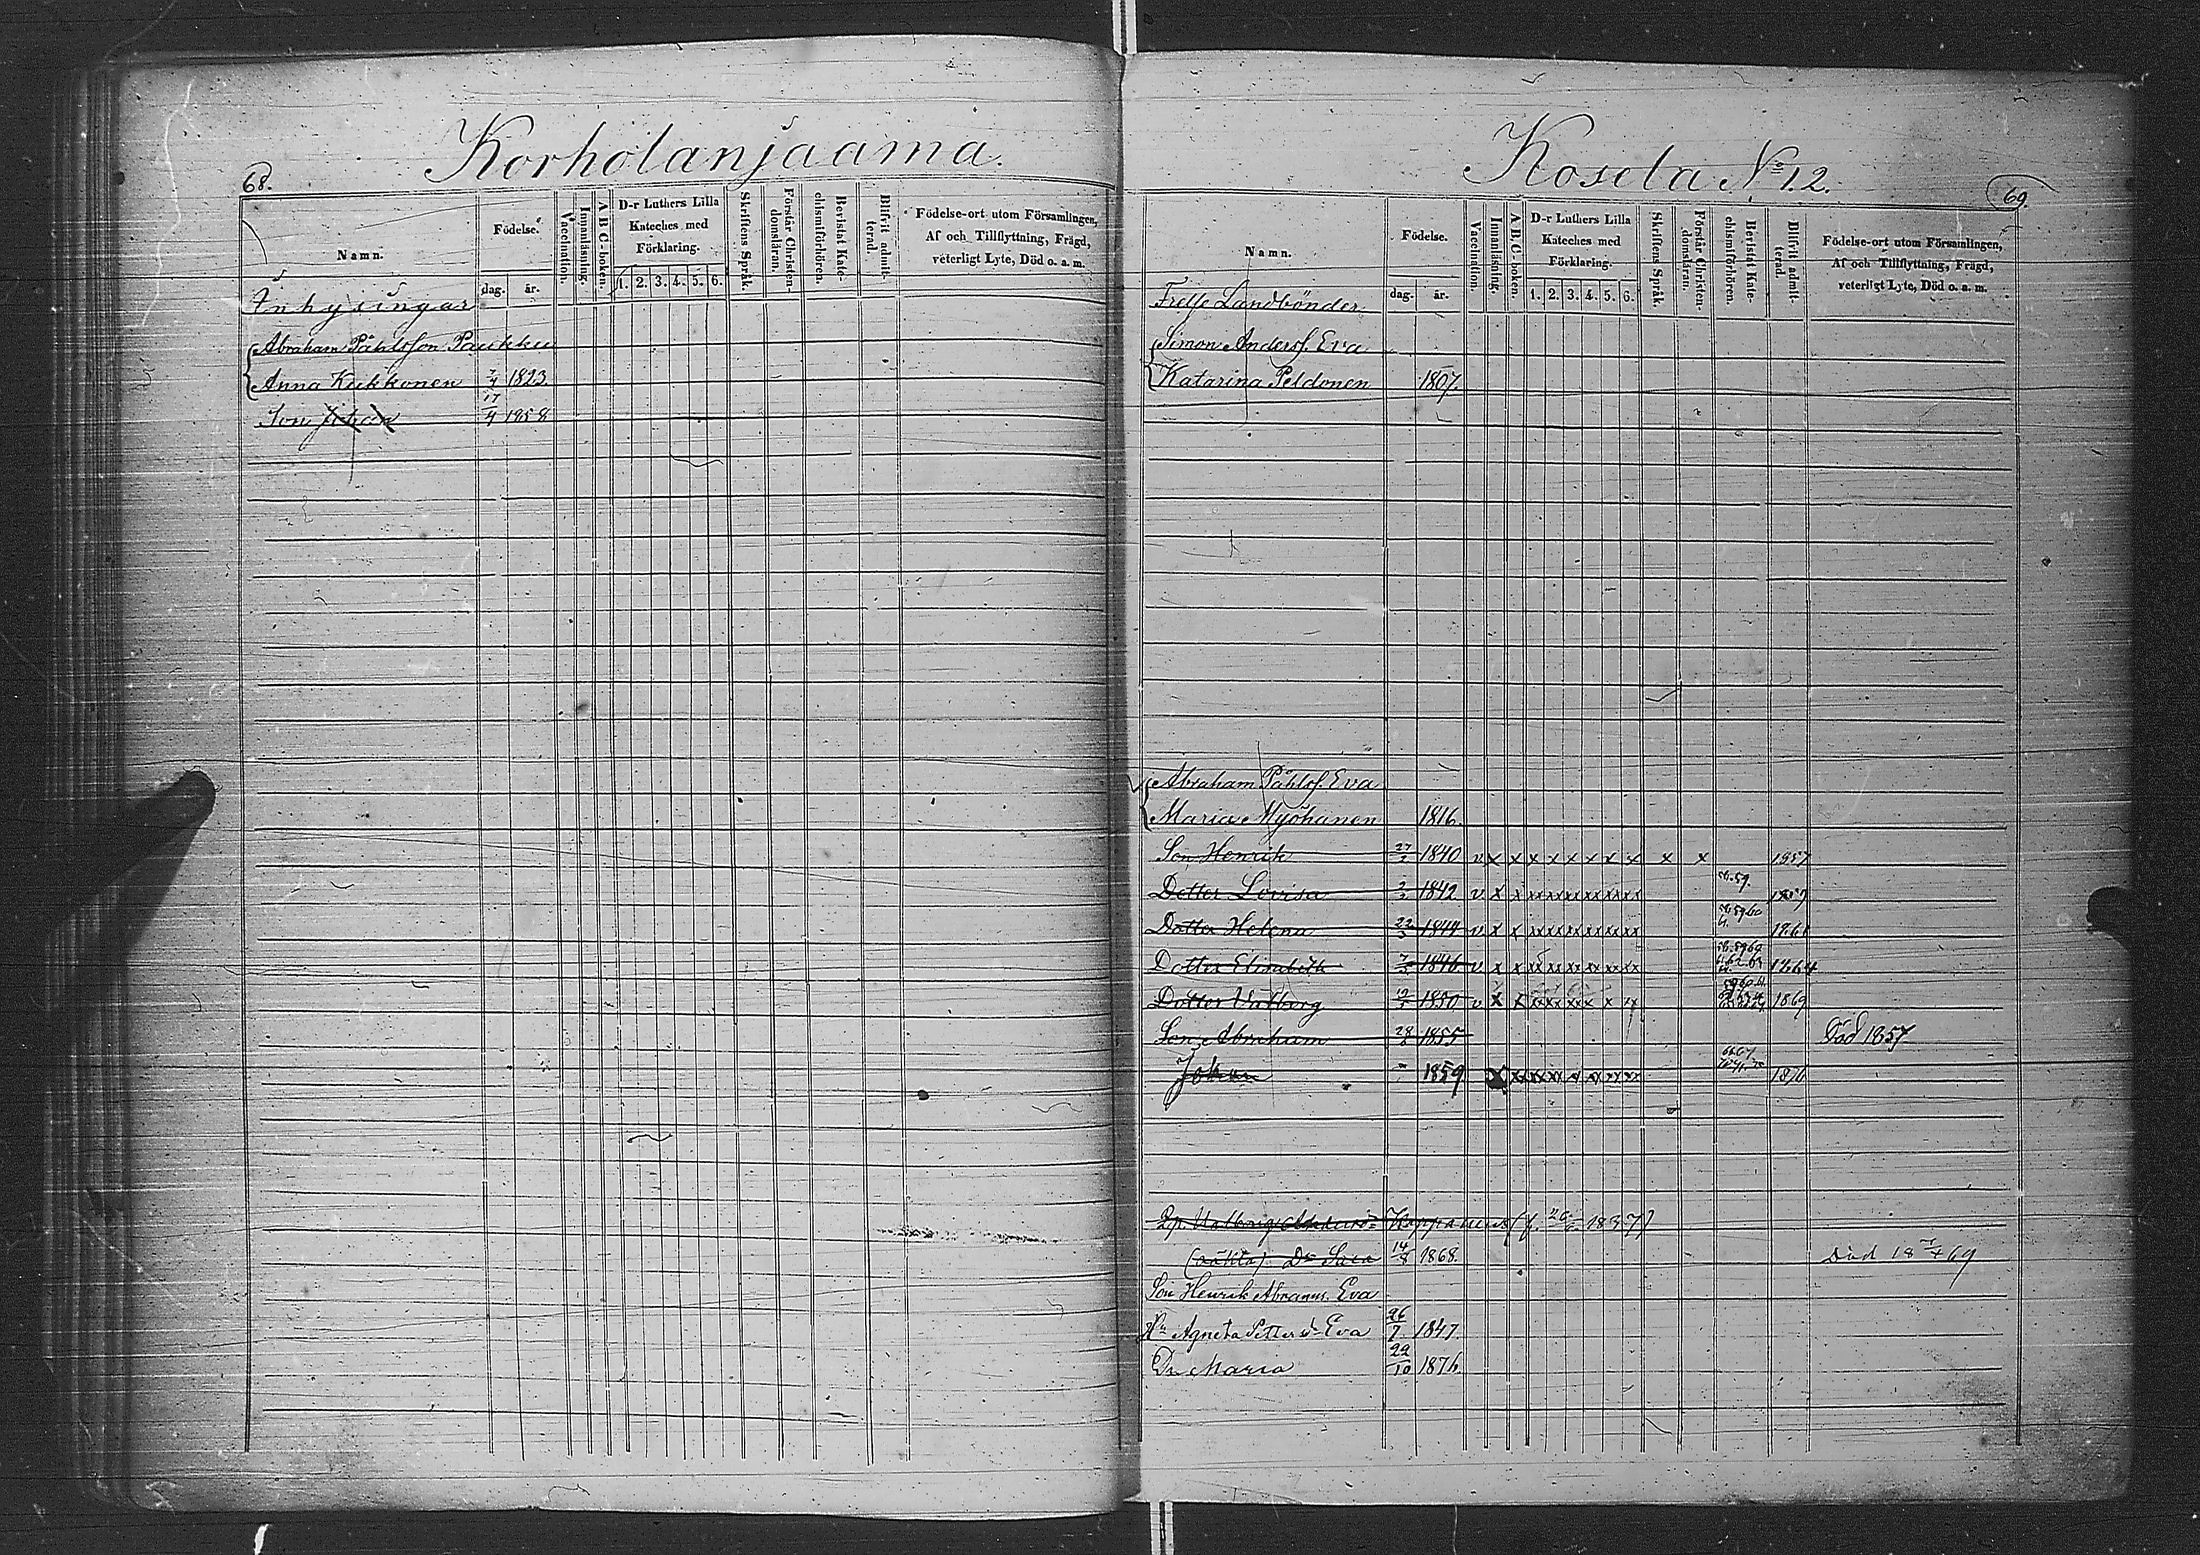 68.
Korholanjaama.
Namn.
Födelse.
dag.
år.
Vaccination.
Innanläsning.
A B C-boken.
D-r Luthers Lilla
Kateches med
Förklaring.
1. 2. 3. 4. 5. 6.
Skriftens Språk.
Förstår Christen-
domsläran.
Bevistat Kate-
chismiförhören.
Blifvit admit-
terad.
Födelse-ort utom Församlingen,
Af och Tillflyttning, Frägd,
veterligt Lyte, Död o. a. m.
Inhysingar
Abraham Påhlsson Paukku
Anna Kukkonen 1823.
Son Johan 17/4 1858
Kosela No 12.
69
Namn.
Födelse.
dag.
år.
Vaccination.
Innanläsning.
A B C-boken.
D-r Luthers Lilla
Kateches med
Förklaring.
1. 2. 3. 4. 5. 6.
Skriftens Språk.
Förstår Christen-
domsläran.
Bevistat Kate-
chismiförhören.
Blifvit admit-
terad.
Födelse-ort utom Församlingen,
Af och Tillflyttning, Frägd,
veterligt Lyte, Död o. a. m.
Frelse Landbönder
Simon Anderss. Eva
Katarina Peldonen 1807.
Abraham Påhlss. Eva
Maria Myöhänen 1816.
Son Henrik 1840 v x x x x x x x x x x 1857
Dotter Lovisa 1842 v x x xx xx xx xx xx xx 58.59. 1859
Dotter Helena 22/3 1844 v x x xx xx xx xx xx xx 1861
Dotter Elisabeth 1846 v x x xx xx xx xx xx xx 1864
Dotter Valborg 1850 v x x 1869
Son Abraham 28/8 1855 Död 1857
Johan 1859 x xx xx xx 1876
Valborg Hyppänens
(oäkta) Dr Sara 14/8 1868. Död 18 69
Son Henrik Abramss. Eva
Hu Agneta Pettersdr Eva 26/7 1847.
Dr Maria 22/10 1876.